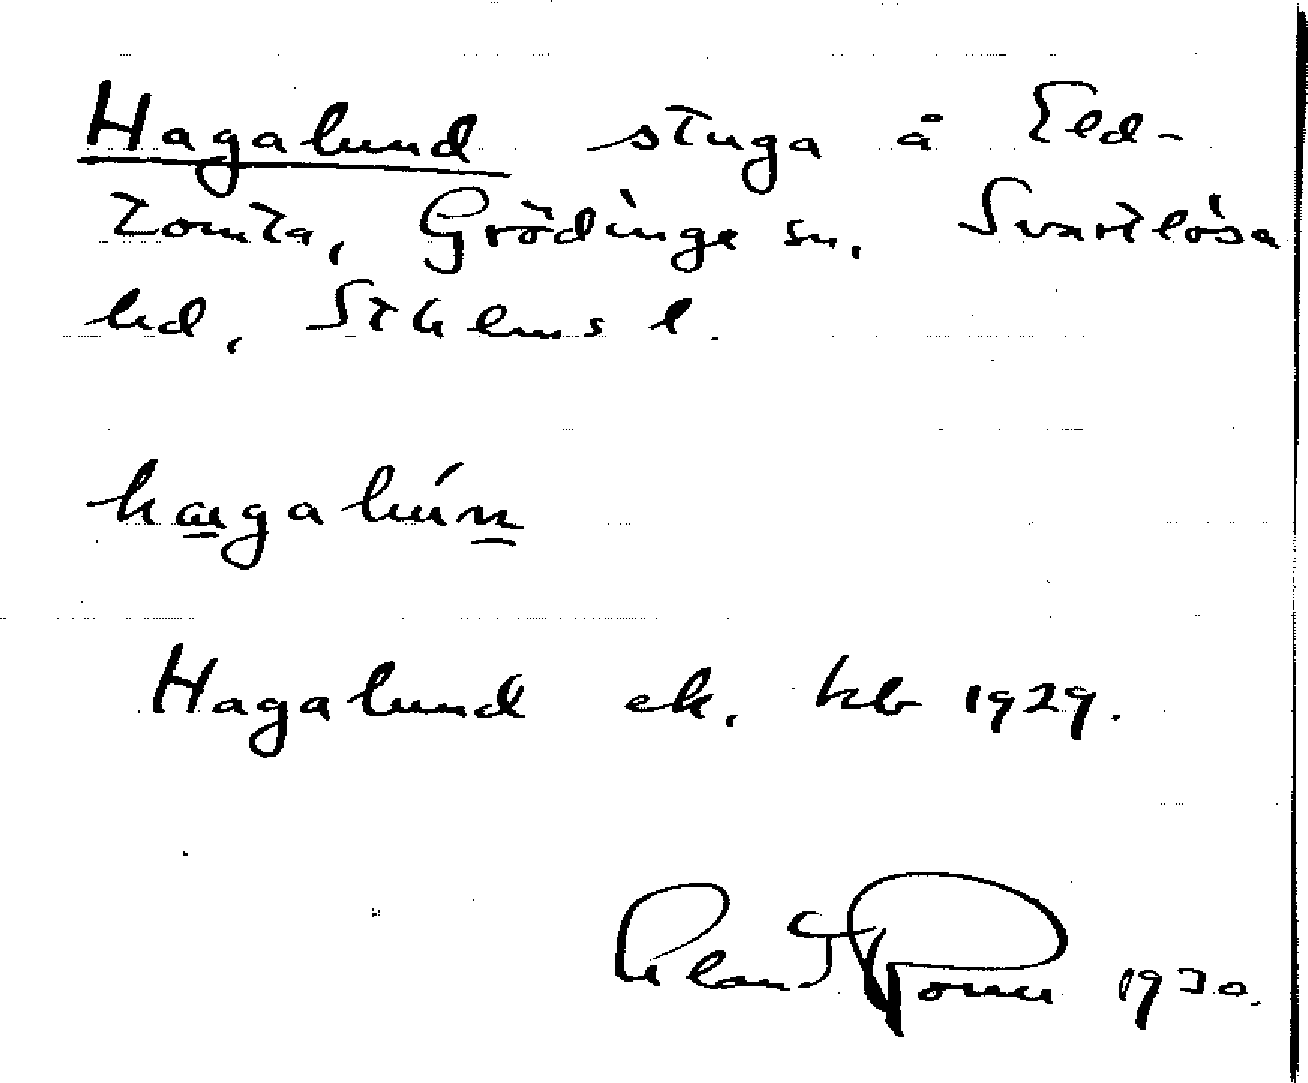 Hagalund stuga å Eld-
tomta, Grödinge sn, Svartlösa
hd, Sthlms l.
hagalún
Hagalund ek. kb 1929.
1930.